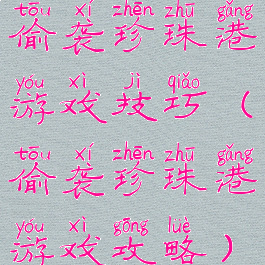 tōu xí zhēn zhū gǎng
偷袭珍珠港
yóu xì jì qiǎo
游戏技巧（
tōu xí zhēn zhū gǎng
偷袭珍珠港
yóu xì gōng lüè
游戏攻略）